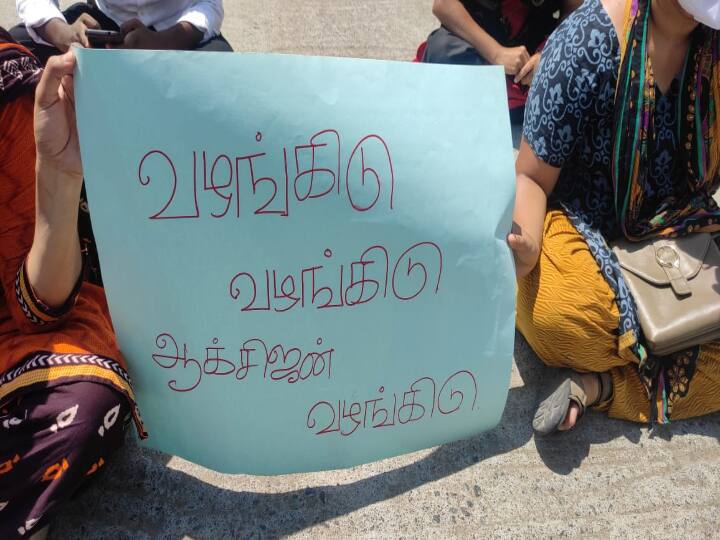 வழங்கிடு
வழங்கிடு
ஆக்சிஜன்
வழங்கிடு